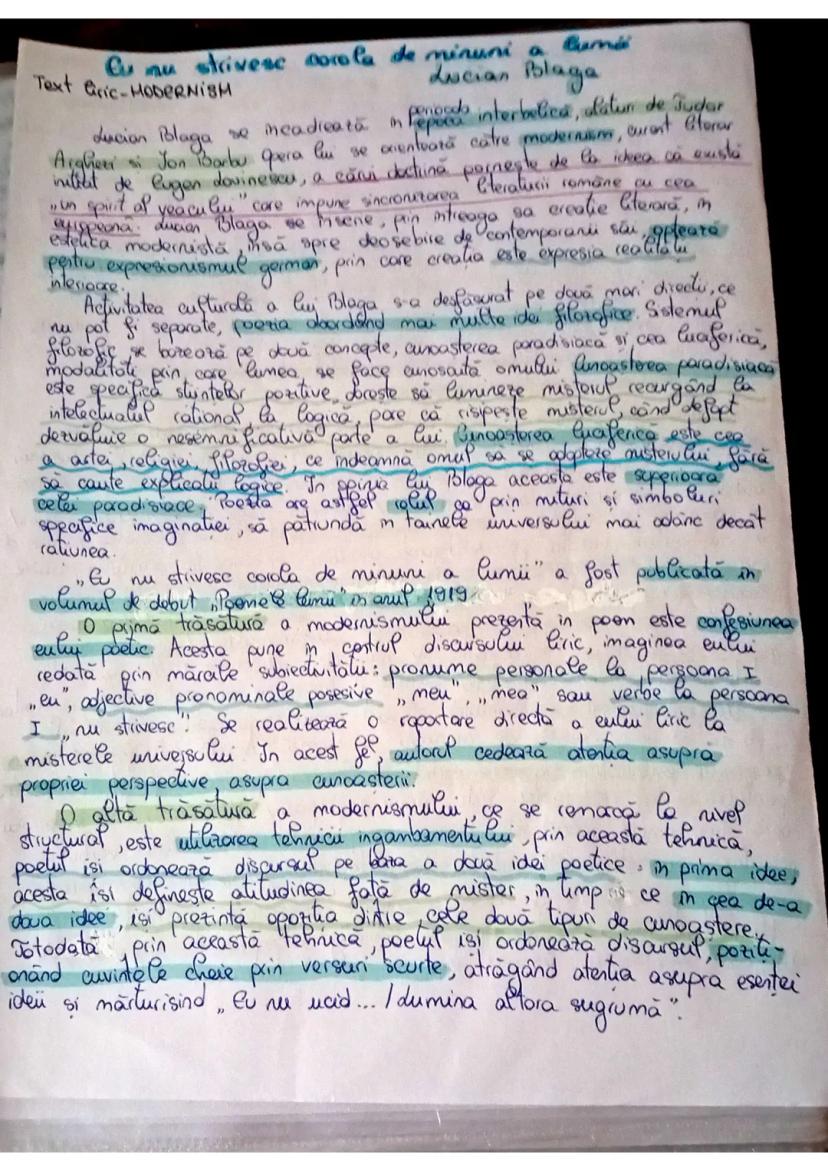 Eu nu strivesc corola de minuni a lumii
Lucian Blaga
Text liric-MODERNISM
Lucian Blaga se incadrează în perioada interbelică, alături de Tudor
epoca
Arghezi si Ion Barbu Opera lui se orientează către modernism, curent literar
inițiat de Eugen Lovinescu, a cărui doctrină pornește de la ideea că există
„un spirit al veacului" care impune sincronizarea literaturii române cu cea
europeană. Lucian Blaga se înscrie, prin intreaga sa creație literară, in
estetica modernistă, însă spre deosebire de contemporanii săi, optează
pentru expresionismul german, prin care creația este expresia realității
interioare.
Activitatea culturală a lui Blaga s-a desfășurat pe două mari direcții, ce
nu pot fi separate, poezia abordând mai multe idei filozofice. Sistemul
filozofic se bazează pe două concepte, cunoașterea paradisiacă și cea luciferică,
modalități prin care lumea se face cunoscută omului Cunoasterea paradisiacă
este specifică stiintelor pozitive, dorește să lumineze misterul recurgând la
intelectualul rational la logică, pare că risipește misterul, când defapt
dezvăluie o nesemnificativă parte a lui. Cunoasterea luciferică este cea
a artei, religiei, filozofiei, ce indeamnă omul să se adapteze misterului, fără
să caute explicatii logice. In opinia lui Blaga aceasta este superioara
celei paradisiace. Poezia are astfel rolul ca prin mituri și simboluri
specifice imaginației, să pătrundă în tainele universului mai adânc decât
rațiunea.
„Eu nu strivesc corola de minuni a lumii" a fost publicată in
volumul de debut „Poemele luminii" in anul 1919
O primă trăsătură a modernismului prezentă in poem este confesiunea
eului poetic. Acesta pune în centrul discursului liric, imaginea eului
redată prin mărcile subiectivității: pronume personale la persoana I
„eu", adjective pronominale posesive „meu", „mea" sau verbe la persoana
I „nu strivesc". Se realizează o raportare directă a eului liric la
misterele universului In acest fel, autorul cedează atenția asupra
propriei perspective asupra cunoasterii.
O altă trăsătură a modernismului, ce se remarcă la nivel
structural, este utilizarea tehnicii ingambamentului, prin această tehnică,
poetul isi ordonează discursul pe baza a două idei poetice: in prima idee,
acesta isi definește atitudinea față de mister, in timp ce in cea de-a
doua idee, isi prezintă opoziția dintre cele două tipuri de cunoastere.
Totodată prin această tehnică, poetul isi ordonează discursul, poziti-
onând cuvintele cheie prin versuri scurte, atrăgând atenția asupra esenței
ideii și mărturisind „Eu nu ucid... / Lumina altora sugrumă".